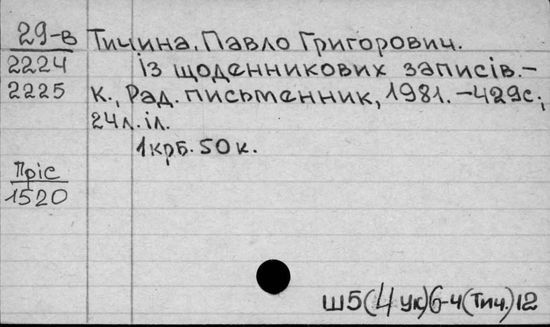 29-в Тичина. Павло Григорович.
2224 із щоденникових записів.-
2225 К., Рад. письменник, 1981. -429с;
24л. іл.
1крб. 50 к.
Пріс
1520
Ш5(4 Ук)6-4(Тич.)12